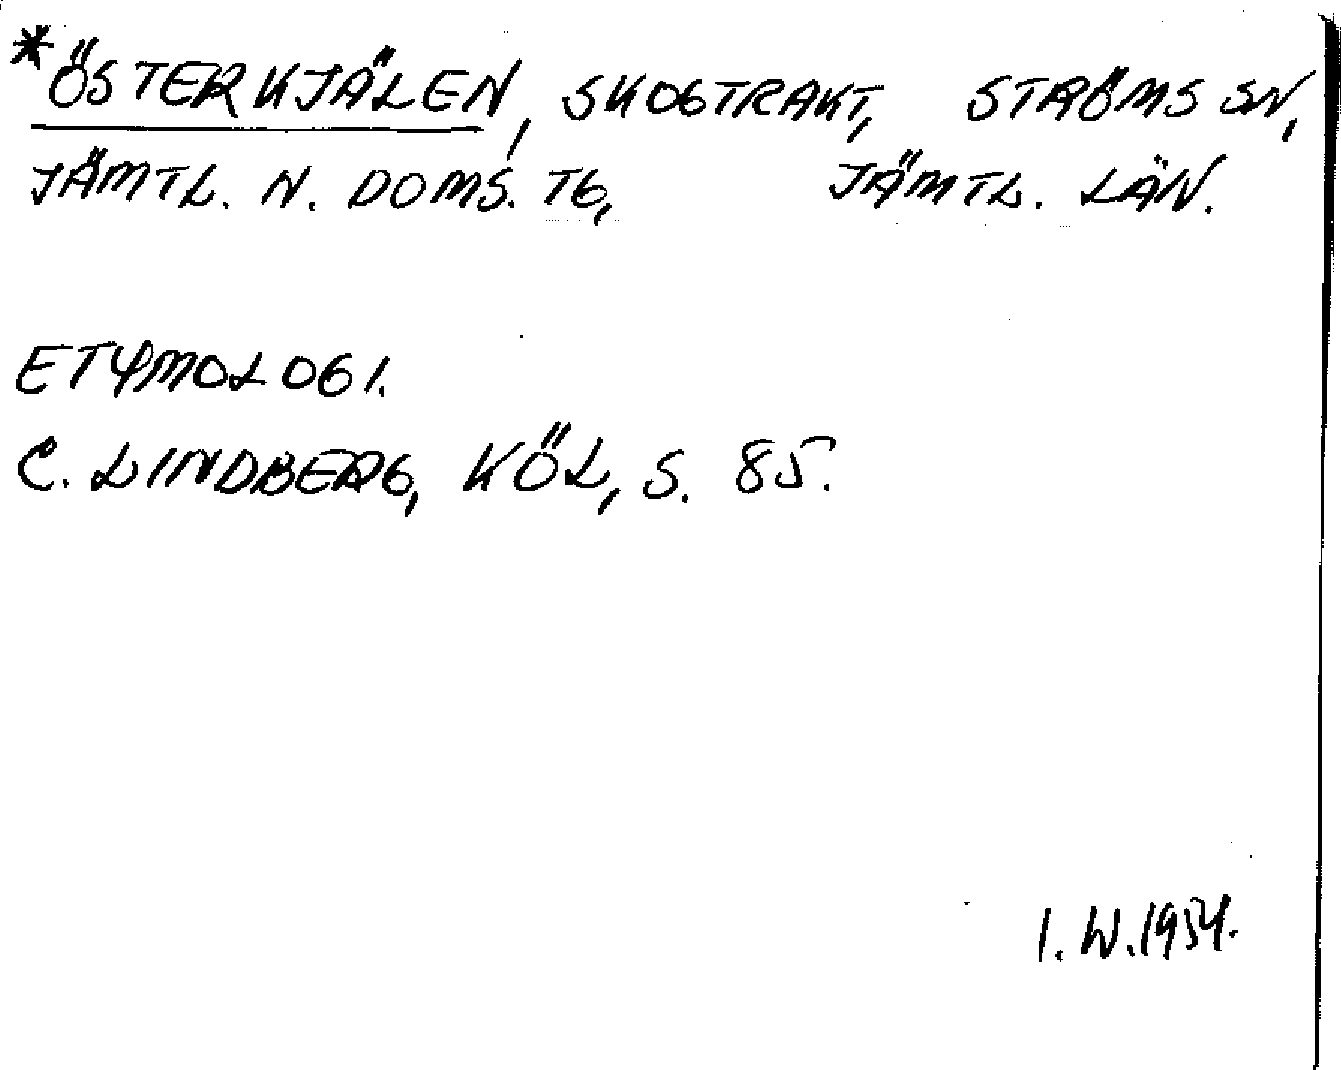 *ÖSTERKJÄLEN, SKOGTRAKT, STRÖMS SN,
JÄMTL. N. DOMS. TG, JÄMTL. LÄN.
ETYMOLOGI.
C. LINDBERG, KÖL, S. 85.
I. W. 1954.